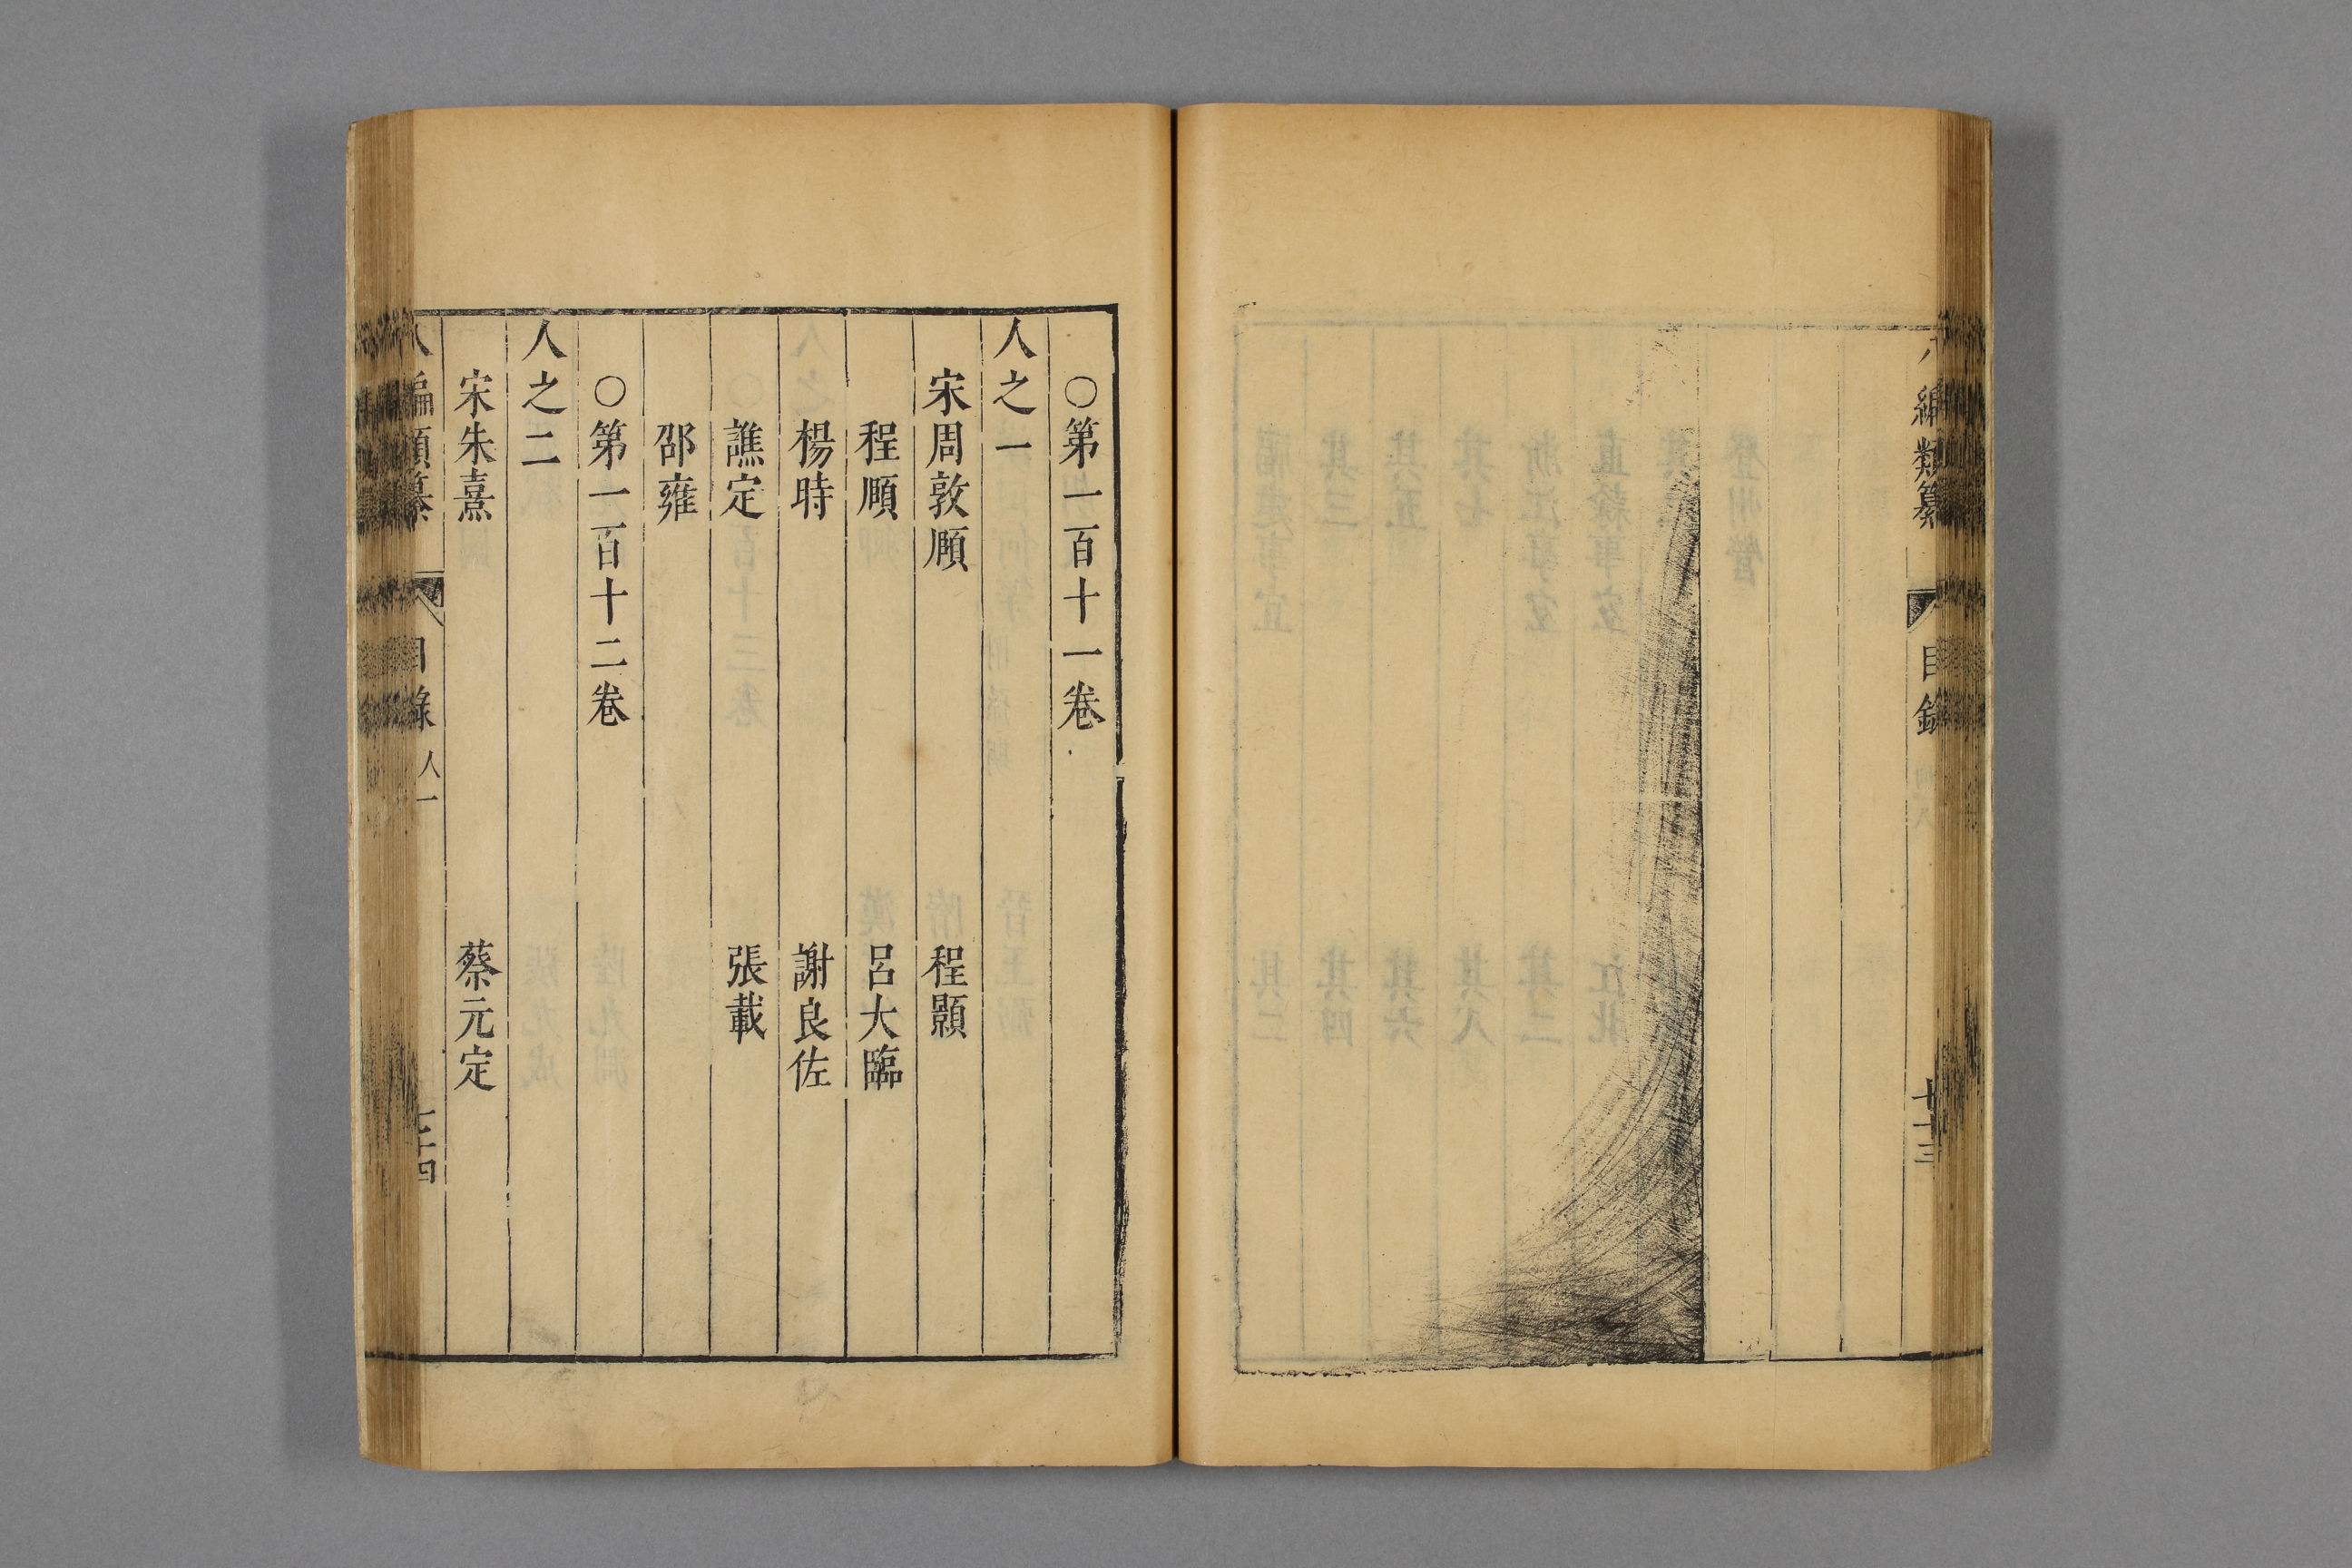 八編類纂 目錄 七十三
○第一百十一卷
人之一
宋周敦頤 程顥
程頤 呂大臨
楊時 謝良佐
譙定 張載
邵雍
○第一百十二卷
人之二
宋朱熹 蔡元定
八編類纂 目錄 人一 七十四